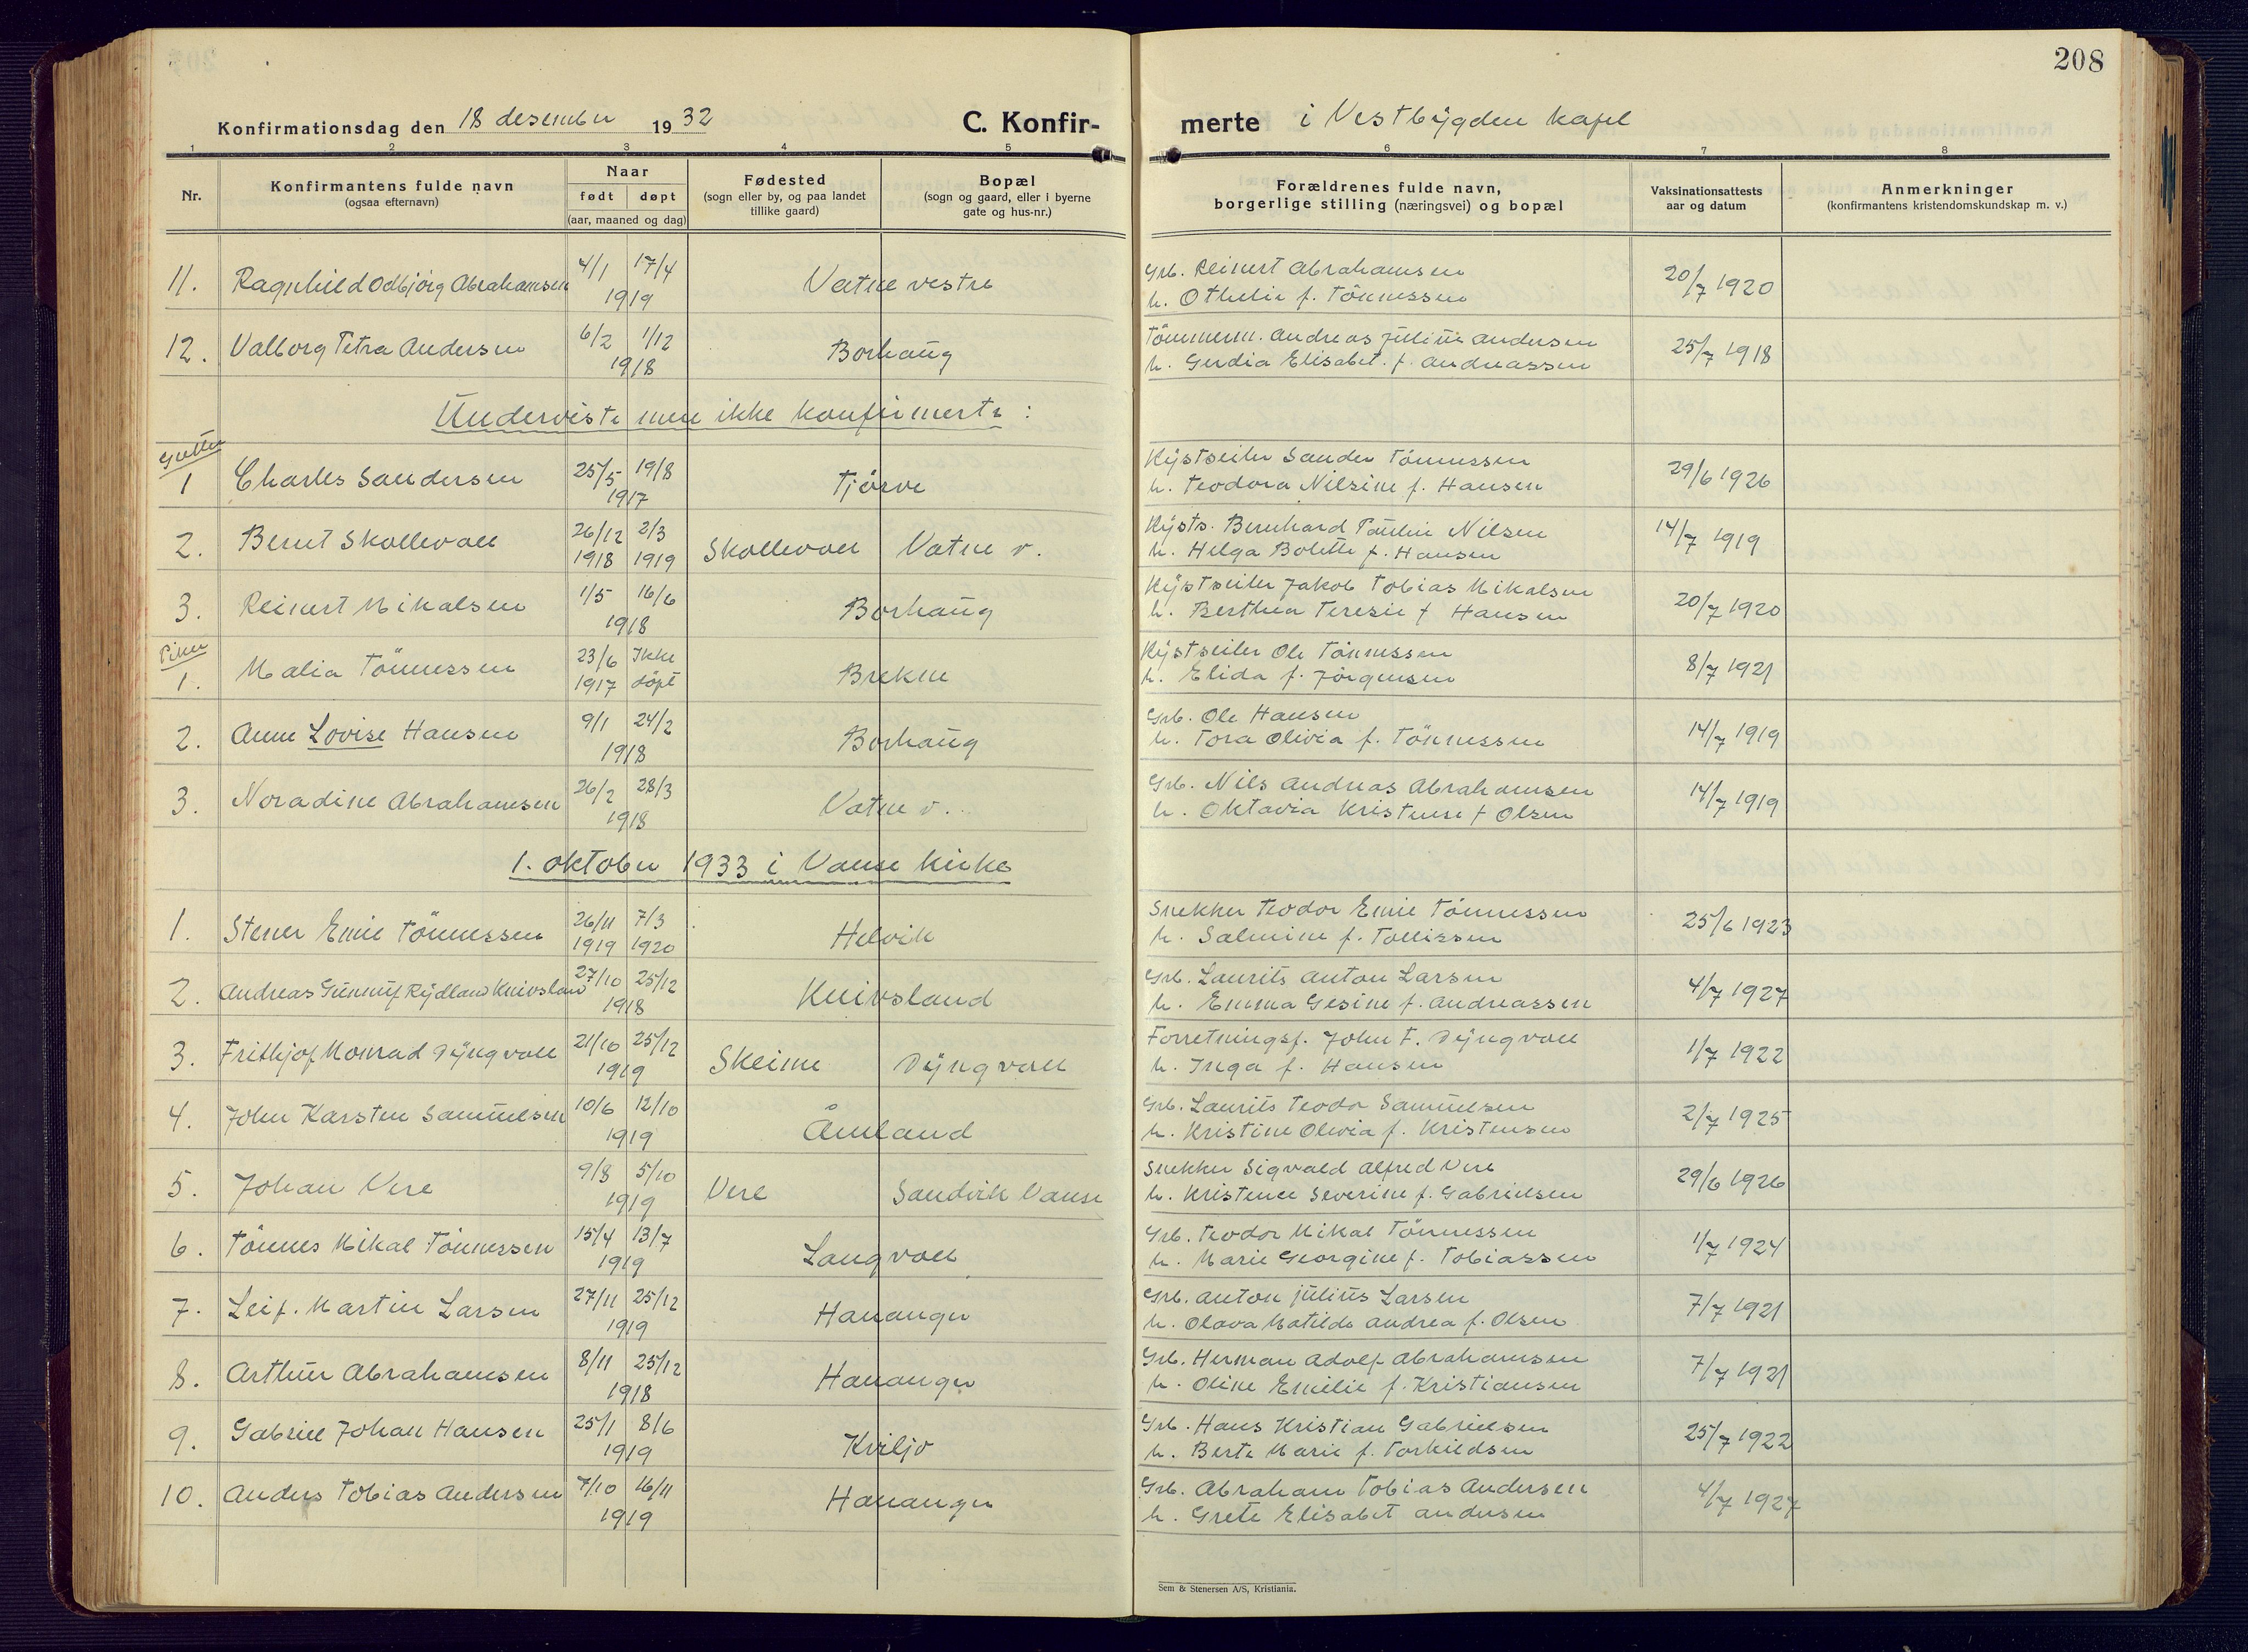 208
Konfirmationsdag den 18 desember 1932 C. Konfir- merte i Vestbygden kapel
1 2 3 4 5 6 7 8
Nr. Konfirmantens fulde navn (ogsaa efternavn) Naar født døpt (aar, maaned og dag) Fødested (sogn eller by, og paa landet tillike gaard) Bopæl (sogn og gaard, eller i byerne gate og hus-nr.) Forældrenes fulde navn, borgerlige stilling (næringsvei) og bopæl Vaksinationsattests aar og datum Anmerkninger (konfirmantens kristendomskundskap m. v.)
11. Ragnhild Odbjörg Abrahamsen 4/1 17/4 1919 Vatne vestre Grb. Reinert Abrahamsen 20/7 1920
h. Othelie f. Tönnessen
12. Valborg Petra Andersen 6/2 1/12 1918 Borhaug Tömmerm. Andreas Julius Andersen 25/7 1918
h. Gerdia Elisabet f. Andreassen
Underviste men ikke konfirmerte:
Gutter
1 Charles Sandersen 25/5 19/8 1917 Tjörve Kystseiler Sander Tönnessen 29/6 1926
h. Teodora Nilsine f. Hansen
2. Bernt Skollevoll 26/12 1918 2/3 1919 Skollevoll Vatne v. Kysts. Bernhard Paulin Nilsen 14/7 1919
h. Helga Bolette f. Hansen
3. Reinert Mikalsen 1/5 16/6 1918 Borhaug Kystseiler Jakob Tobias Mikalsen 20/7 1920
h. Berthea Teresie f Hansen
Piker
1. Malia Tönnessen 23/6 1917 Ikke döpt Brekne Kystseiler Ole Tönnessen 8/7 1921
h. Elida f. Jörgensen
2. Anne Lovise Hansen 9/1 24/2 1918 Borhaug Grb. Ole Hansen 14/7 1919
h. Tora Olivia f. Tönnessen
3. Noradine Abrahamsen 26/2 28/3 1918 Vatne v. Grb. Nils Andreas Abrahamsen 14/7 1919
h. Oktavia Kristense f Olsen
1. oktober 1933 i Vanse kirke
1. Stener Emil Tönnessen 26/11 1919 7/3 1920 Helvik Snekker Teodor Emil Tönnessen 25/6 1923
h. Salmine f. Tollissen
2. Andreas Gunnuf Rydland Knivsland 27/10 25/12 1918 Knivsland Grb. Laurits Anton Larsen 4/7 1927
h. Emma Gesine f. Andreassen
3. Frithjof Monrad Dyngvoll 21/10 25/12 1919 Skeime Dyngvoll Forretningsf. John F. Dyngvoll 1/7 1922
h. Inga f. Hansen
4. John Karsten Samuelsen 10/6 12/10 1919 Åmland Grb. Laurits Teodor Samuelsen 2/7 1925
h. Kristine Olivia f. Kristensen
5. Johan Vere 9/8 5/10 1919 Vere Sandvik Vanse Snekker Sigvald Alfred Vere 29/6 1926
h. Kristence Severine f. Gabrielsen
6. Tönnes Mikal Tönnessen 15/4 13/7 1919 Langvoll Grb. Teodor Mikal Tönnessen 1/7 1924
h. Marie Georgine f. Tobiassen
7. Leif. Martin Larsen 27/11 25/12 1919 Hananger Grb. Anton Julius Larsen 7/7 1921
h. Olava Matilde Andrea f. Olsen
8. Arthur Abrahamsen 8/11 25/12 1918 Hananger Grb. Herman Adolf Abrahamsen 7/7 1921
h. Oline Emilie f. Kristiansen
9. Gabriel Johan Hansen 25/1 8/6 1919 Kviljo Grb. Hans Kristian Gabrielsen 25/7 1922
h. Berte Marie f. Torkildsen
10. Anders Tobias Andersen 7/10 16/11 1919 Hananger Grb. Abraham Tobias Andersen 4/7 1927
h. Grete Elisabet Andersen
Sem & Stenersen A/S, Kristiania.